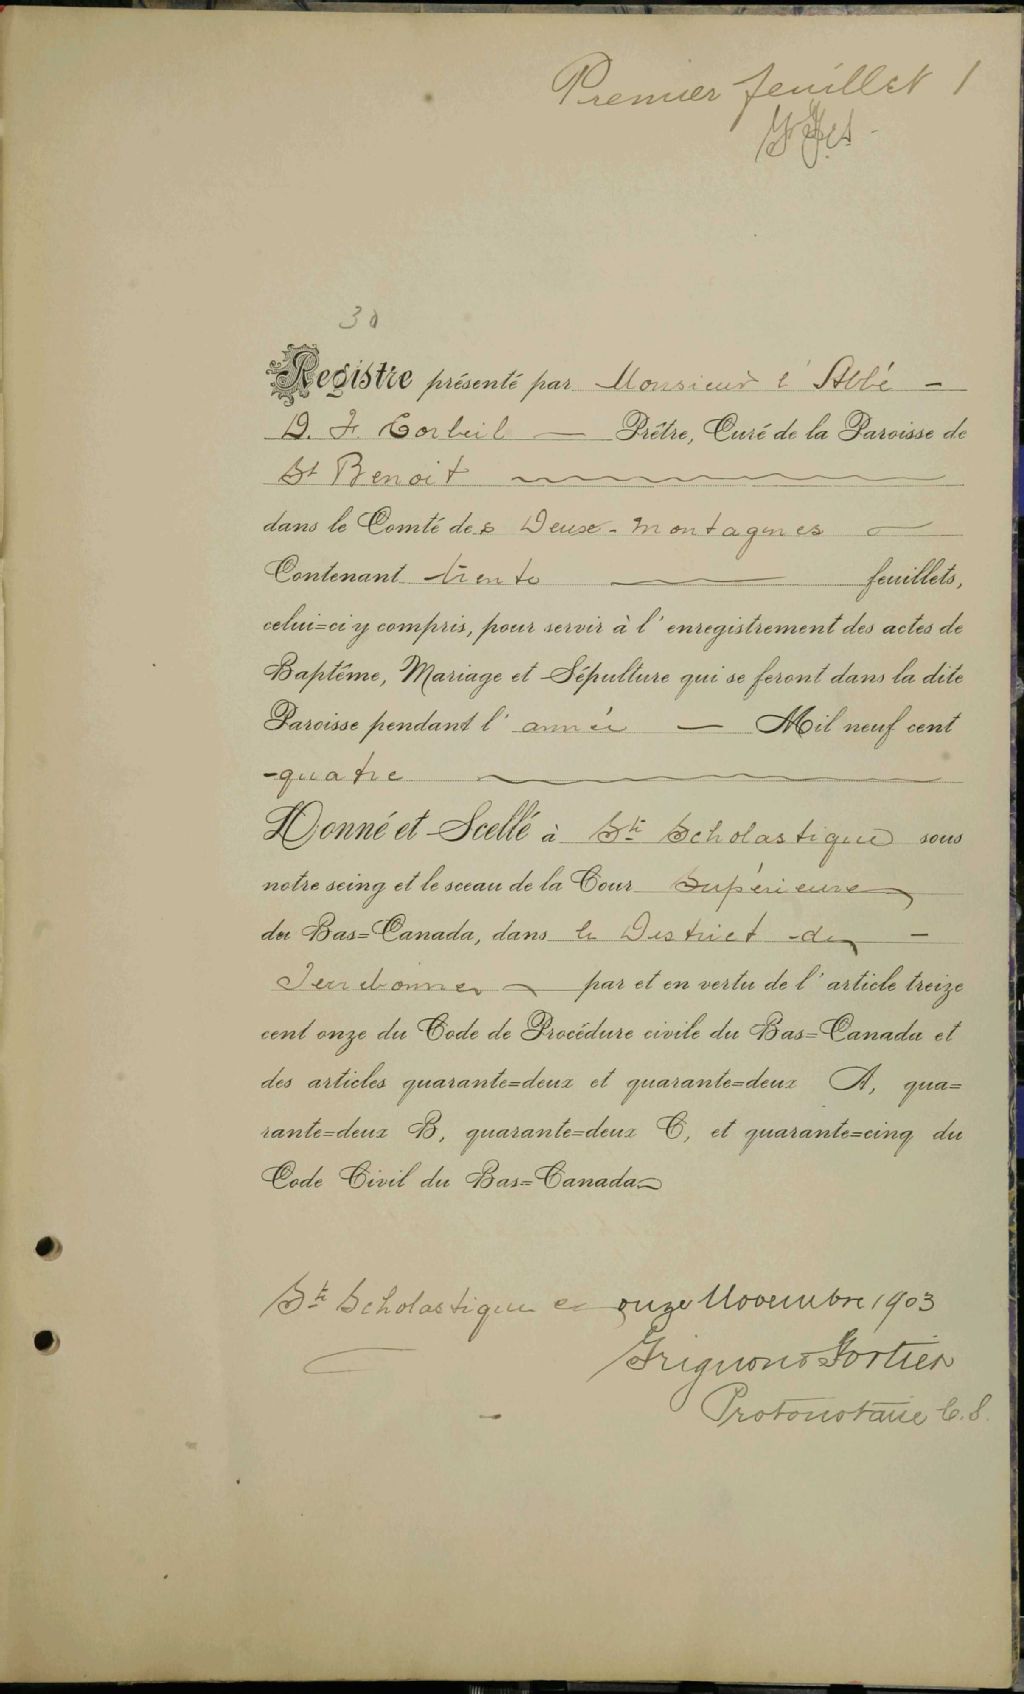 Premier feuillet 1
30
Registre présenté par Monsieur l'Abbé -
D. F. Corbeil — Prêtre, Curé de la Paroisse de
St Benoit
dans le Comté des Deux-Montagnes
Contenant trente — feuillets,
celui=ci y compris, pour servir à l'enregistrement des actes de
Baptême, Mariage et Sépulture qui se feront dans la dite
Paroisse pendant l'année — Mil neuf cent
-quatre
Donné et Scellé à Ste Scholastique sous
notre seing et le sceau de la Cour Supérieure
du Bas=Canada, dans le District de -
Terrebonne par et en vertu de l'article treize
cent onze du Code de Procédure civile du Bas=Canada et
des articles quarante=deux et quarante=deux A, qua=
rante=deux B, quarante=deux C, et quarante=cinq du
Code Civil du Bas=Canada
Ste Scholastique ce onze Novembre 1903
Grignon & Fortier
Protonotaire C.S.